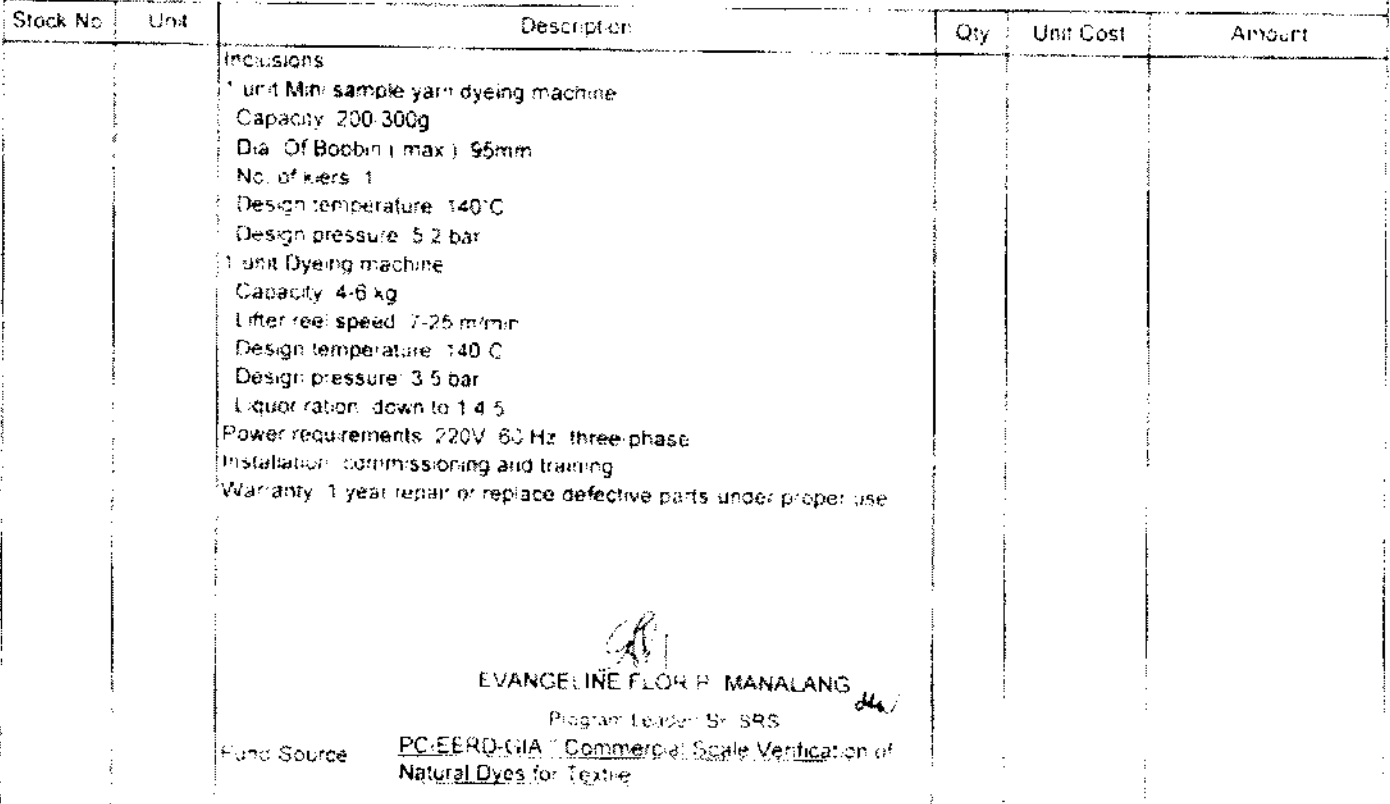 Stock No Unit Description Qty Unit Cost Amount
Inclusions
1 unit Mini sample yarn dyeing machine
Capacity 200-300g
Dia. Of Bobbin ( max ) 95mm
No. of kiers 1
Design temperature 140°C
Design pressure 5.2 bar
1 unit Dyeing machine
Capacity 4-6 kg
Lifter reel speed 7-25 m/min
Design temperature 140 C
Design pressure 3.5 bar
Liquor ration down to 1 4.5
Power requirements 220V 60 Hz three-phase
Installation commissioning and training
Warranty 1 year repair or replace defective parts under proper use
EVANGELINE FLOR P. MANALANG
Program Leader Sr SRS
Fund Source PC-EERD-GIA " Commercial Scale Verification of
Natural Dyes for Textile